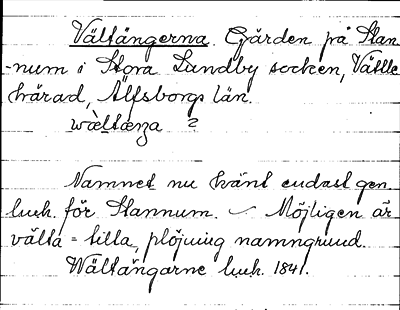 Vältängerna. Gården på Stan-
num i Stora Lundby socken, Vättle
härad, Älfsborgs län.
wàltænza ?
Namnet nu känt endast gen.
luk. för Stannum. – Möjligen är
välta = tilta, plöjning namngrund.
Wältängarne luk. 1841.